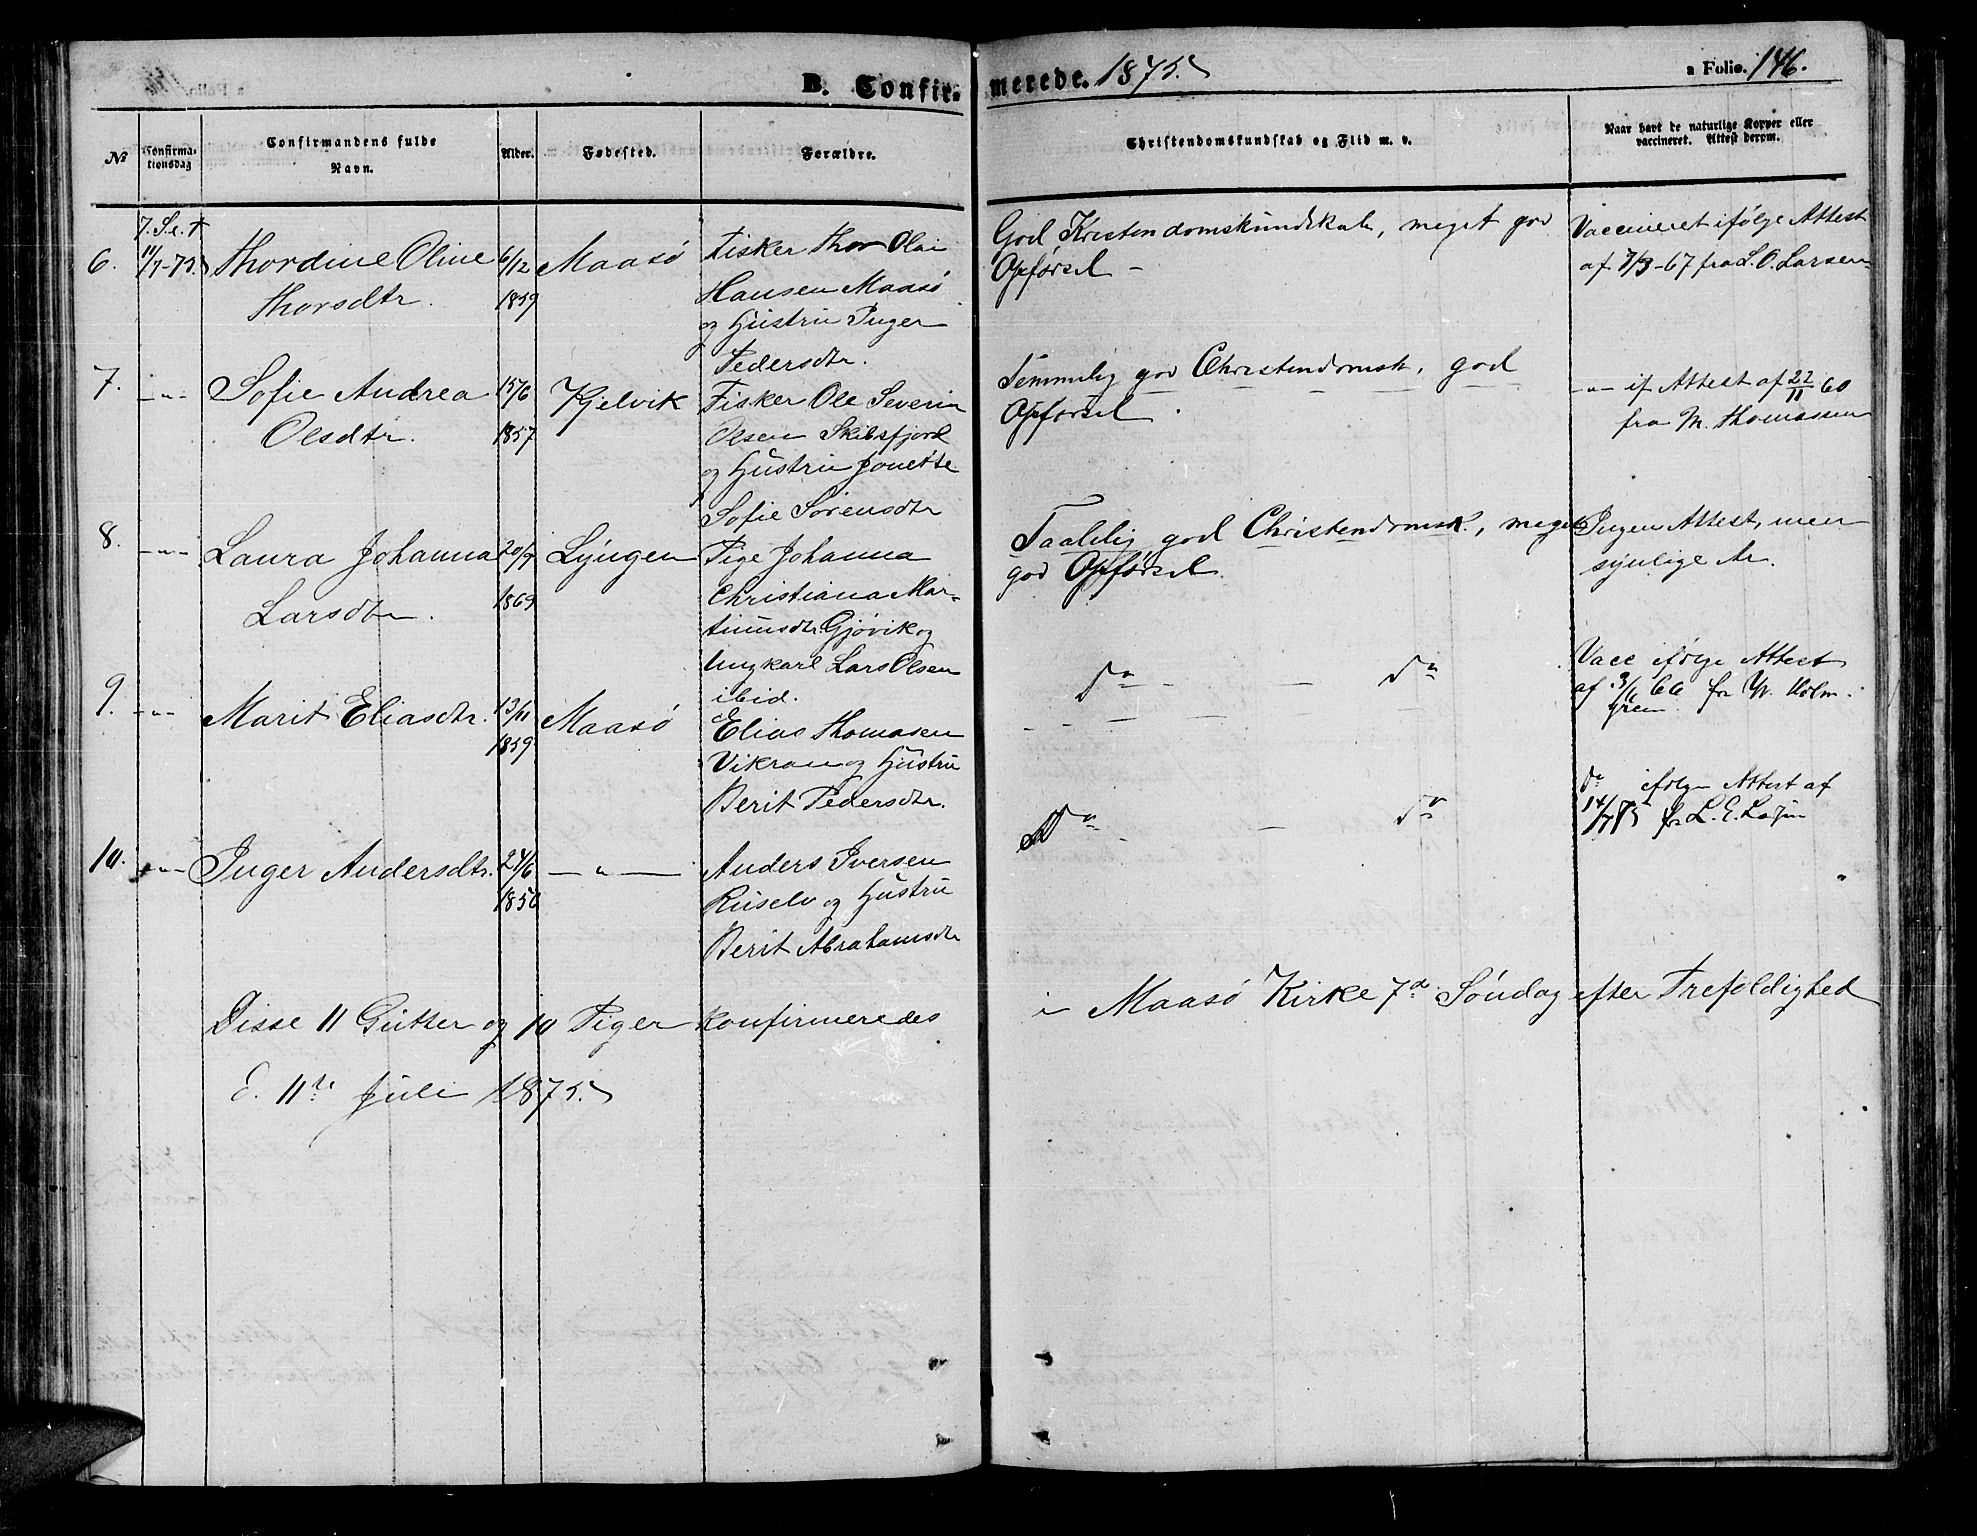 B. Confir-
merede. 1875.
a Folio. 146.
No
Confirma-
tionsdag
Confirmandens fulde
Navn.
Alder.
Fødested.
Forældre.
Christendomskundskab og Flid m. v.
Naar havt de naturlige Kopper eller
vaccineret. Attest derom.
7. S. e. t
6.
11/7-75.
Thordine Oline
Thorsdtr.
6/12
1859
Maasö
Fisker Thor Olai
Hansen Maasö
og Hustru Inger
Pedersdtr.
God Kristendomskundskab, meget god
Opførsel -
Vaccineret ifølge Attest
af 7/9-67 fra L. O. Larsen
7.
-"-
Sofie Andrea
Olsdtr.
15/6
1857
Kjelvik
Fisker Ole Severin
Olsen Skibsfjord
og Hustru Jonette
Sofie Sörensdtr
Temmelig god Christendomsk, god
Opførsel.
-"- if Attest af 22/11 60
fra M. Thomassen
8.
-"-
Laura Johanna
Larsdtr.
20/9
Lyngen
Pige Johanna
Christiana Mar-
tinusdtr Gjövik og
Ungkarl Lars Olsen
ibid.
Taalelig god Christendomsk., meget
god Opførsel.
Ingen Attest, men
synlige Ar.
9.
-"-
Marit Eliasdtr.
13/11
1859
Maasö
Elias Thomasen
Vikran og Hustru
Berit Pedersdtr.
Do - - do
Vacc ifølge Attest
af 66 fr Holm-
gren.
10.
-"-
Inger Andersdtr.
24/6
- " -
Anders Iversen
Ruselv og Hustru
Berit Abrahamsdtr
Do - - do
do ifølge Attest af
14/7 75 fr L. E.
Disse 11 Gutter og 10 Piger konfirmeredes
i Maasö Kirke 7de Söndag efter Trefoldighed
d. 11te Juli 1875.